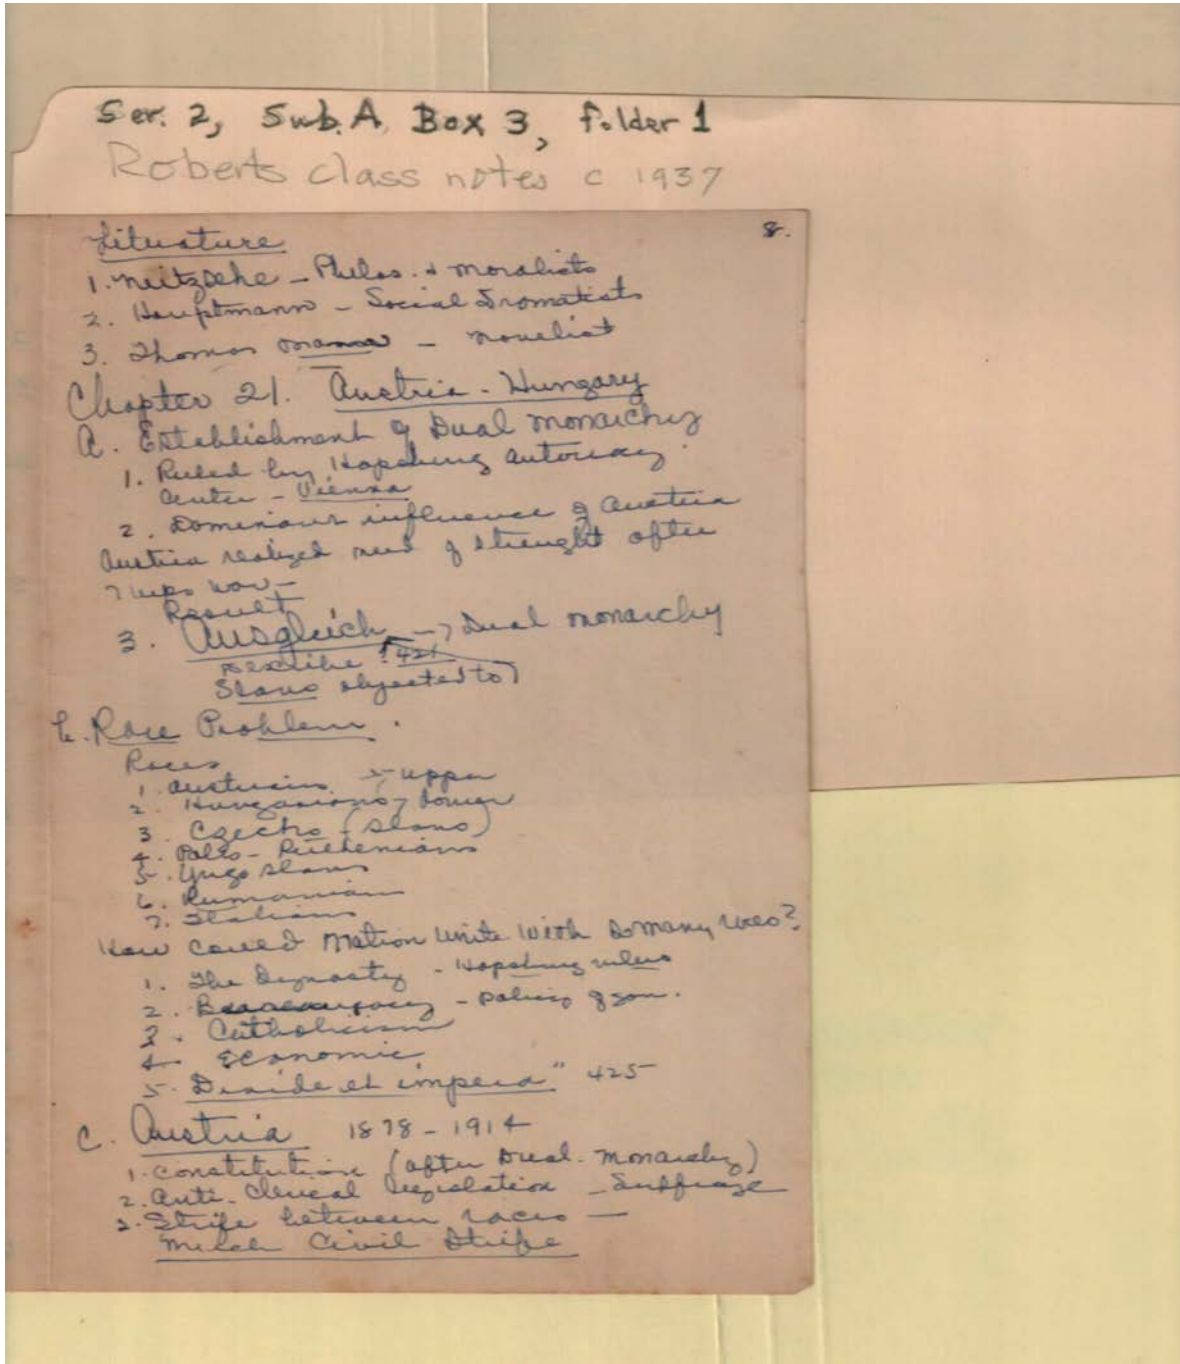 Ser. 2, Sub. A Box 3, folder 1
Roberts class notes c 1937
8.
Lituature
1. Neitzsche - Philos. + moralists
2. Hauptmann - Social Dramatists
3. Thomas Mann - novelist
Chapter 21. Austria - Hungary
A. Establishment of Dual Monarchy
1. Ruled by Hapsburg autocracy.
Center - Vienna
2. Dominant influence of Austria
Austria realized need of strenght after
7 wks war -
Result
3. Ausgleich -> Dual monarchy
Describe 421
Slavs objected to
b. Race Problem.
Races
1. Austrians - upper
2. Hungarians - lower
3. Czechs - (Slavs)
4. Poles - Ruthenians
5. Yugo slavs
6. Rumanians
7. Italians
How could Nation Unite with so many races?
1. The Dynasty - Hapsburg rulers
2. - policy of gov.
3. Catholicism
4. Economic
5. Divide et impera" 425
C. Austria 1878 - 1914
1. Constitution (after Dual. Monarchy)
2. Anti-Clerical legislation - Suffrage
3. Strife between races -
Much Civil Strife